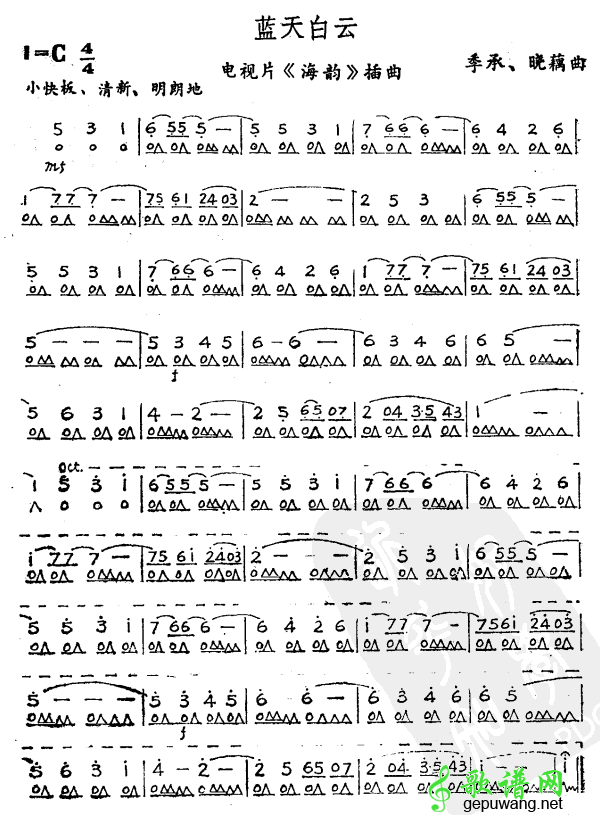 蓝天白云
1=C 4/4
电视片《海韵》插曲
季承、晓藕曲
小快板、清新、明朗地
5 3 1 | 6 55 5 - | 5 5 3 1 | 7 66 6 - | 6 4 2 6 |
mf
1 77 7 - | 75 61 24 03 | 2 - - - | 2 5 3 | 6 55 5 - |
5 5 3 1 | 7 66 6 - | 6 4 2 6 | 1 77 7 - | 75 61 24 03 |
5 - - - | 5 3 4 5 | 6 - 6 - | 6 3 4 6 | 6 5 - |
f
5 6 3 1 | 4 - 2 - | 2 5 65 07 | 2 04 3·5 43 | 1 - - |
Oct.
1 5 3 1 | 6 55 5 - | 5 5 3 1 | 7 66 6 - | 6 4 2 6 |
1 77 7 - | 75 61 24 03 | 2 - - - | 2 5 3 1 | 6 55 5 - |
5 5 3 1 | 7 66 6 - | 6 4 2 6 | 1 77 7 - | 7561 24 03 |
5 - - - | 5 3 4 5 | 6 6 - | 6 3 4 6 | 6 5 - - |
f
5 6 3 1 | 4 - 2 - | 2 5 65 07 | 2 04 35 43 | 1
歌谱网
gepuwang.net